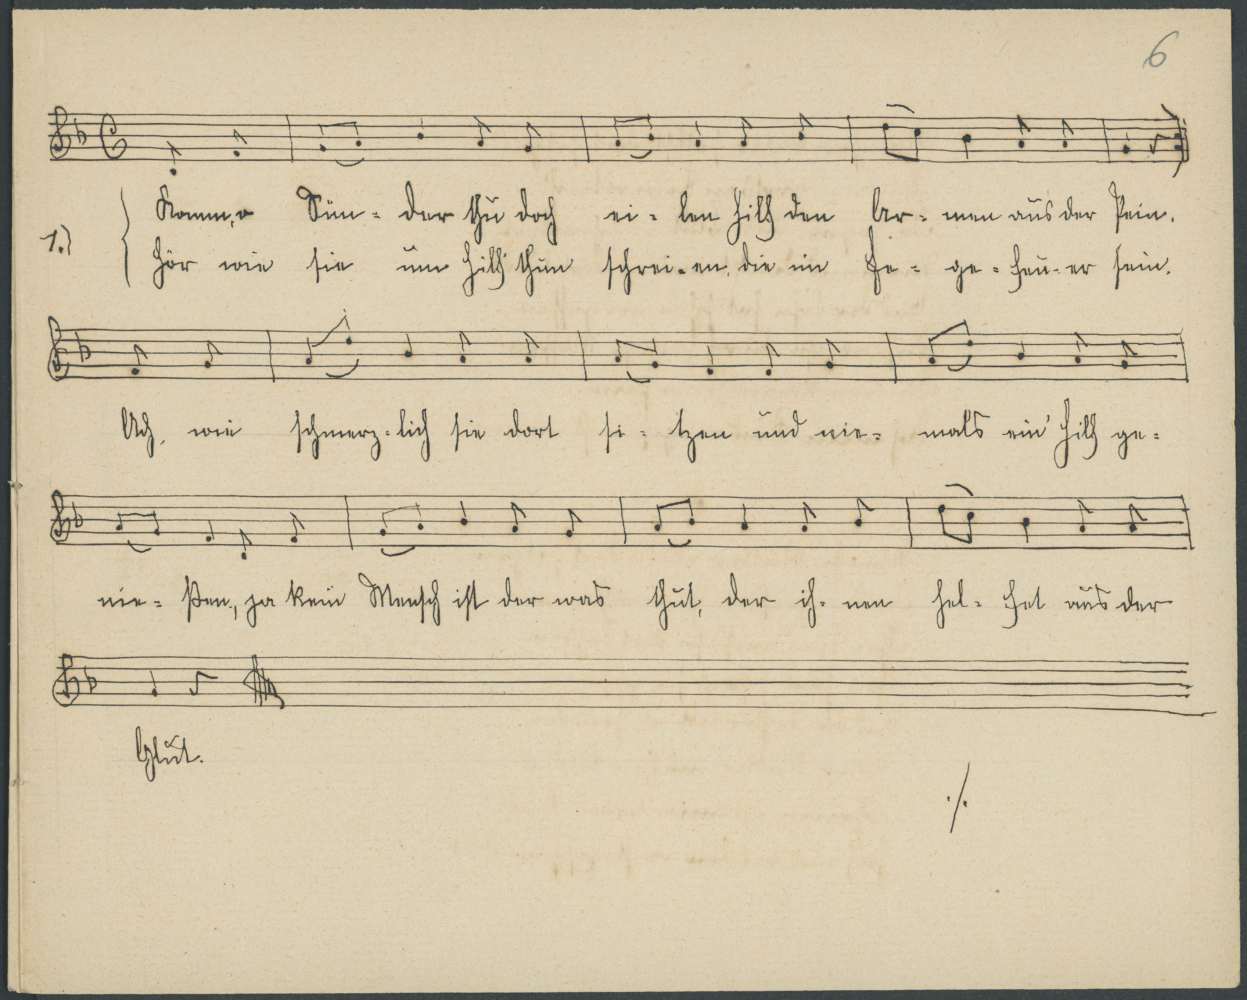 6
Komm, o Sün- der thu doch ei- len hilf den Ar- men aus der Pein.
1.)
Hör wie sie um Hilf' thun schrei-en, die im Fe- ge- feu- er sein.
Ach, wie schmerz-lich sie dort si- tzen und nie- mals ein' Hilf ge-
nie- ßen, ja kein Mensch ist der was thut, der ih- nen hel- fet aus der
Glut.
./.